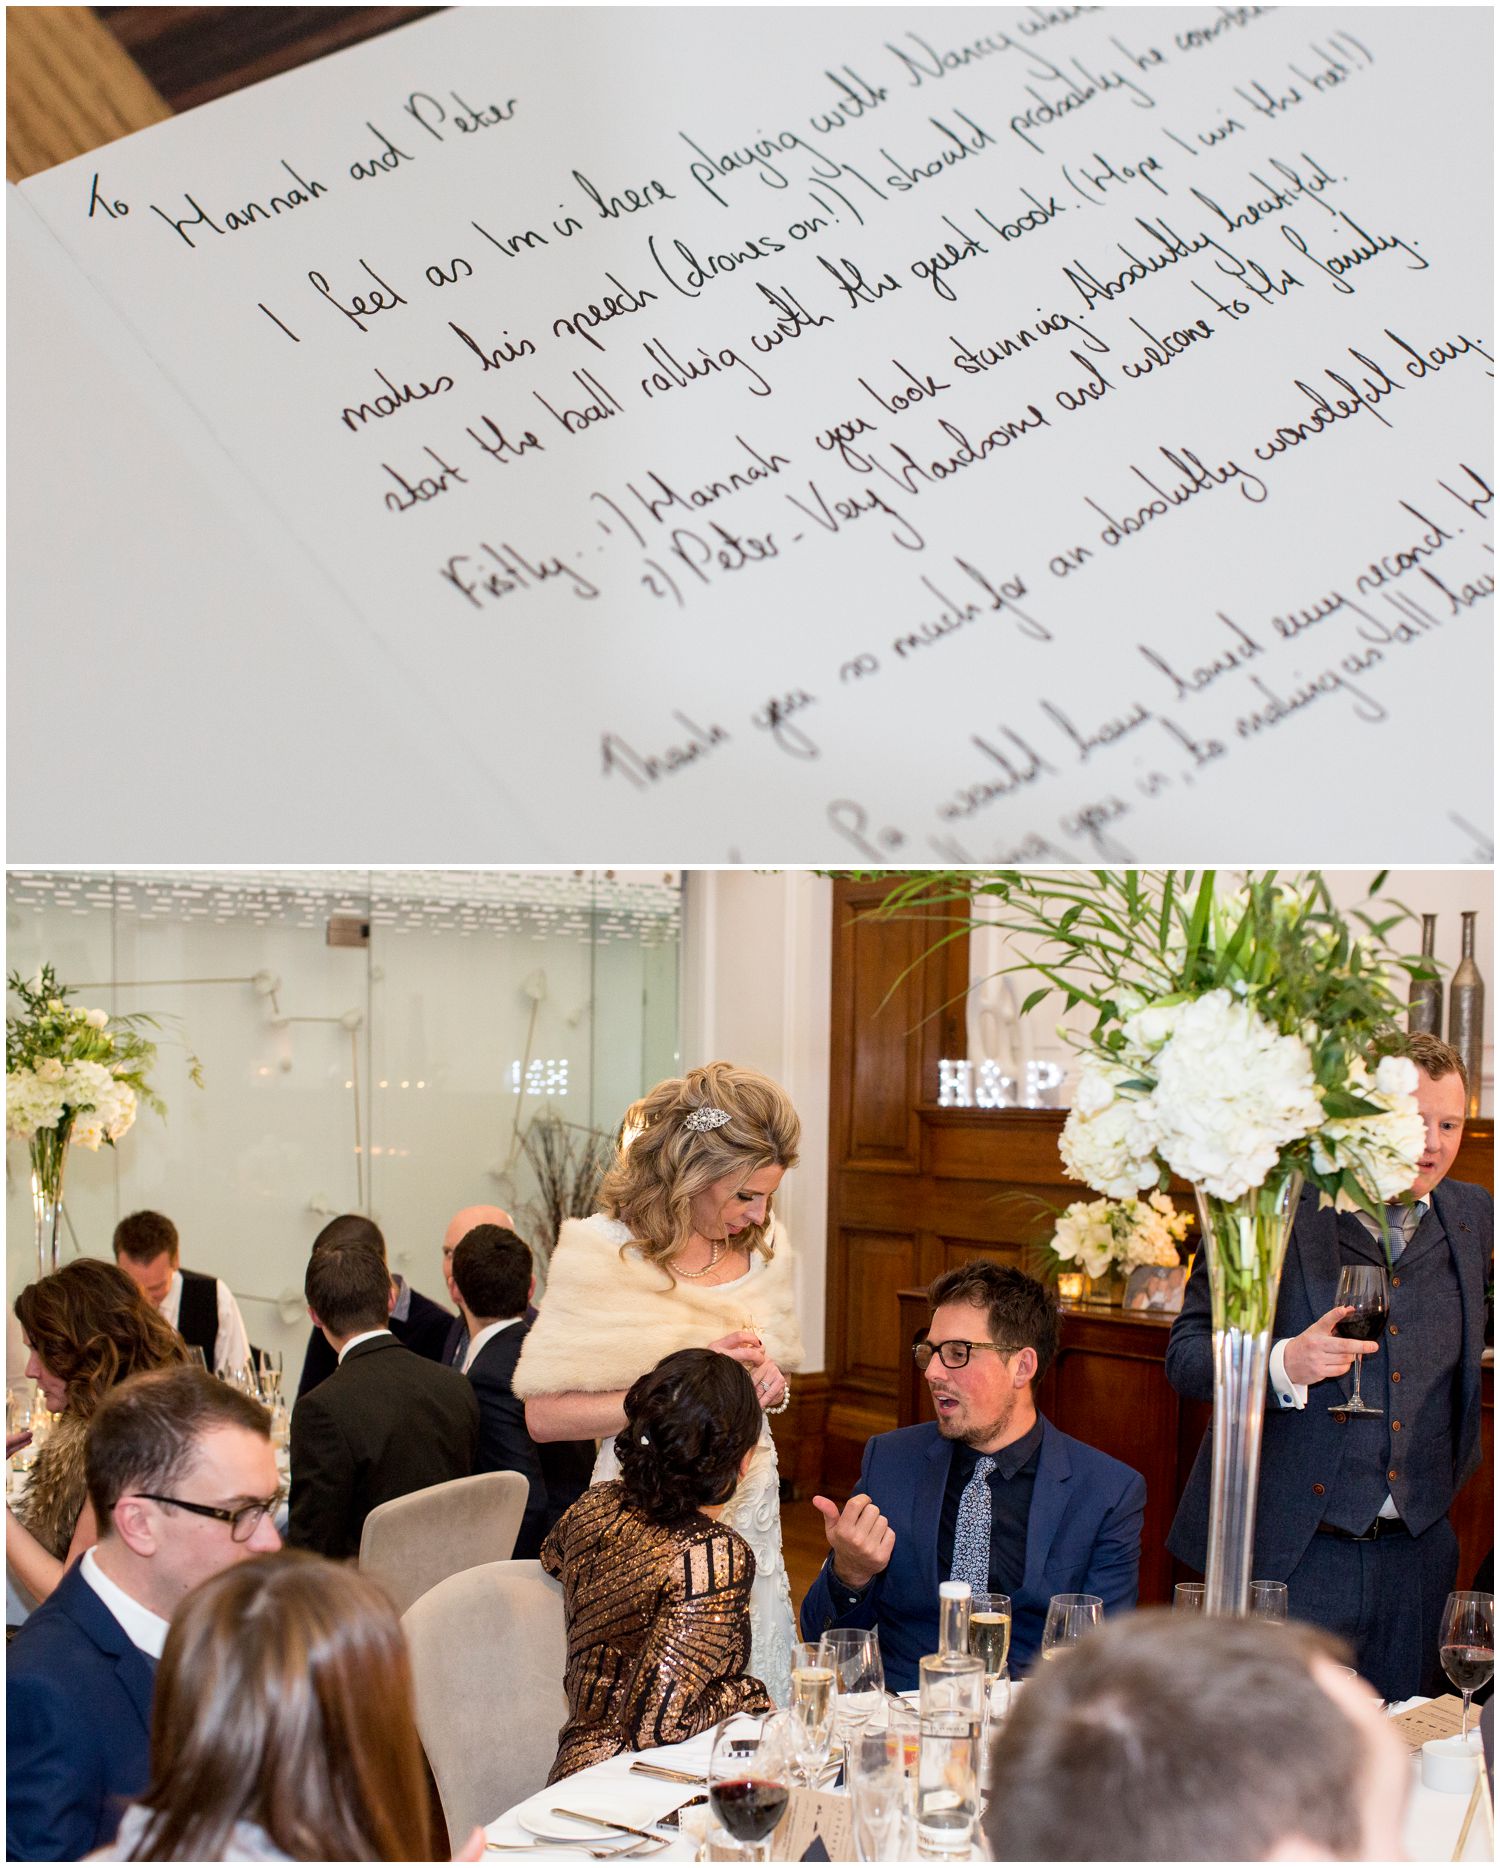 To
Hannah and Peter
I feel as Im in here playing with Nancy
makes his speech (drones on!) I should probably be
start the ball rolling with the guest book. (Hope I win the bet!)
Firstly.. 1) Hannah you look stunning. Absolutly beautiful.
2) Peter - Very Handsome and welcome to the family.
Thank you so much for an absolutly wonderful day.
would have loved every second.
you is, to making us all
H&P